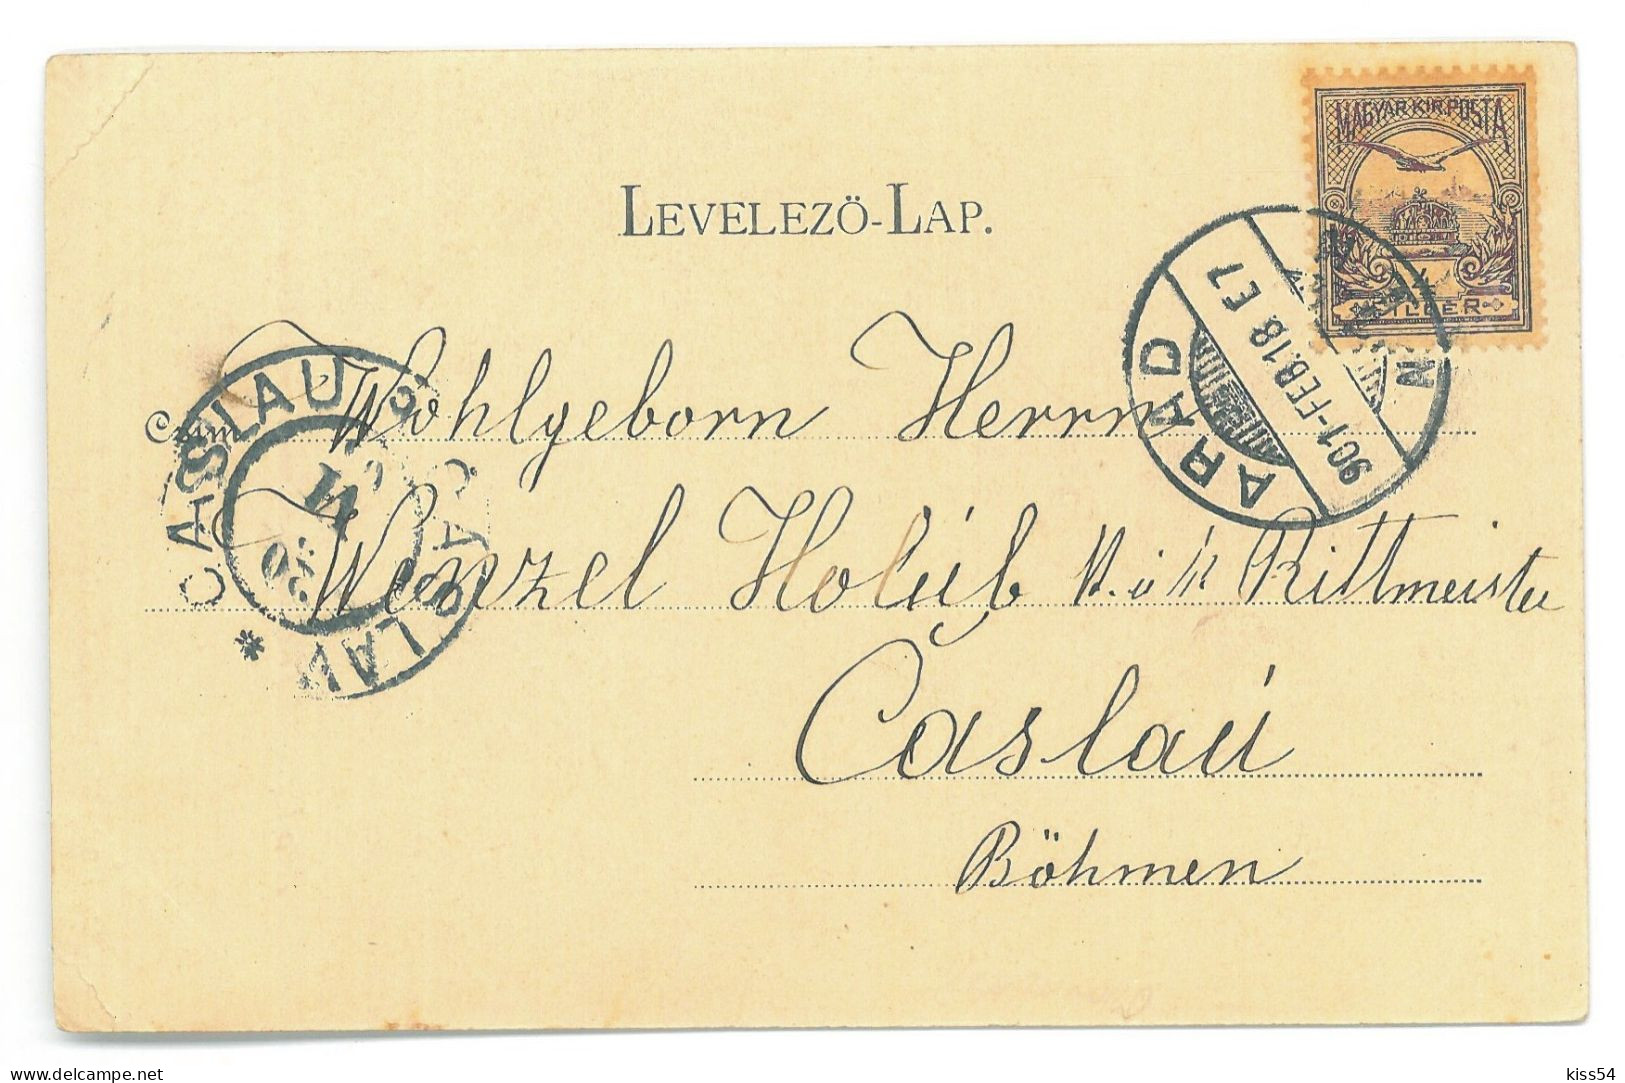 MAGYAR KIR. POSTA
FILLÉR
LEVELEZŐ-LAP.
ARAD
901-FEB.18 E7
CASLAU
CASLAU
Czim
Wohlgeborn Herrn
Wenzel Holúb k. u k Rittmeister
Caslaú
Böhmen
delcampe.net
kiss54